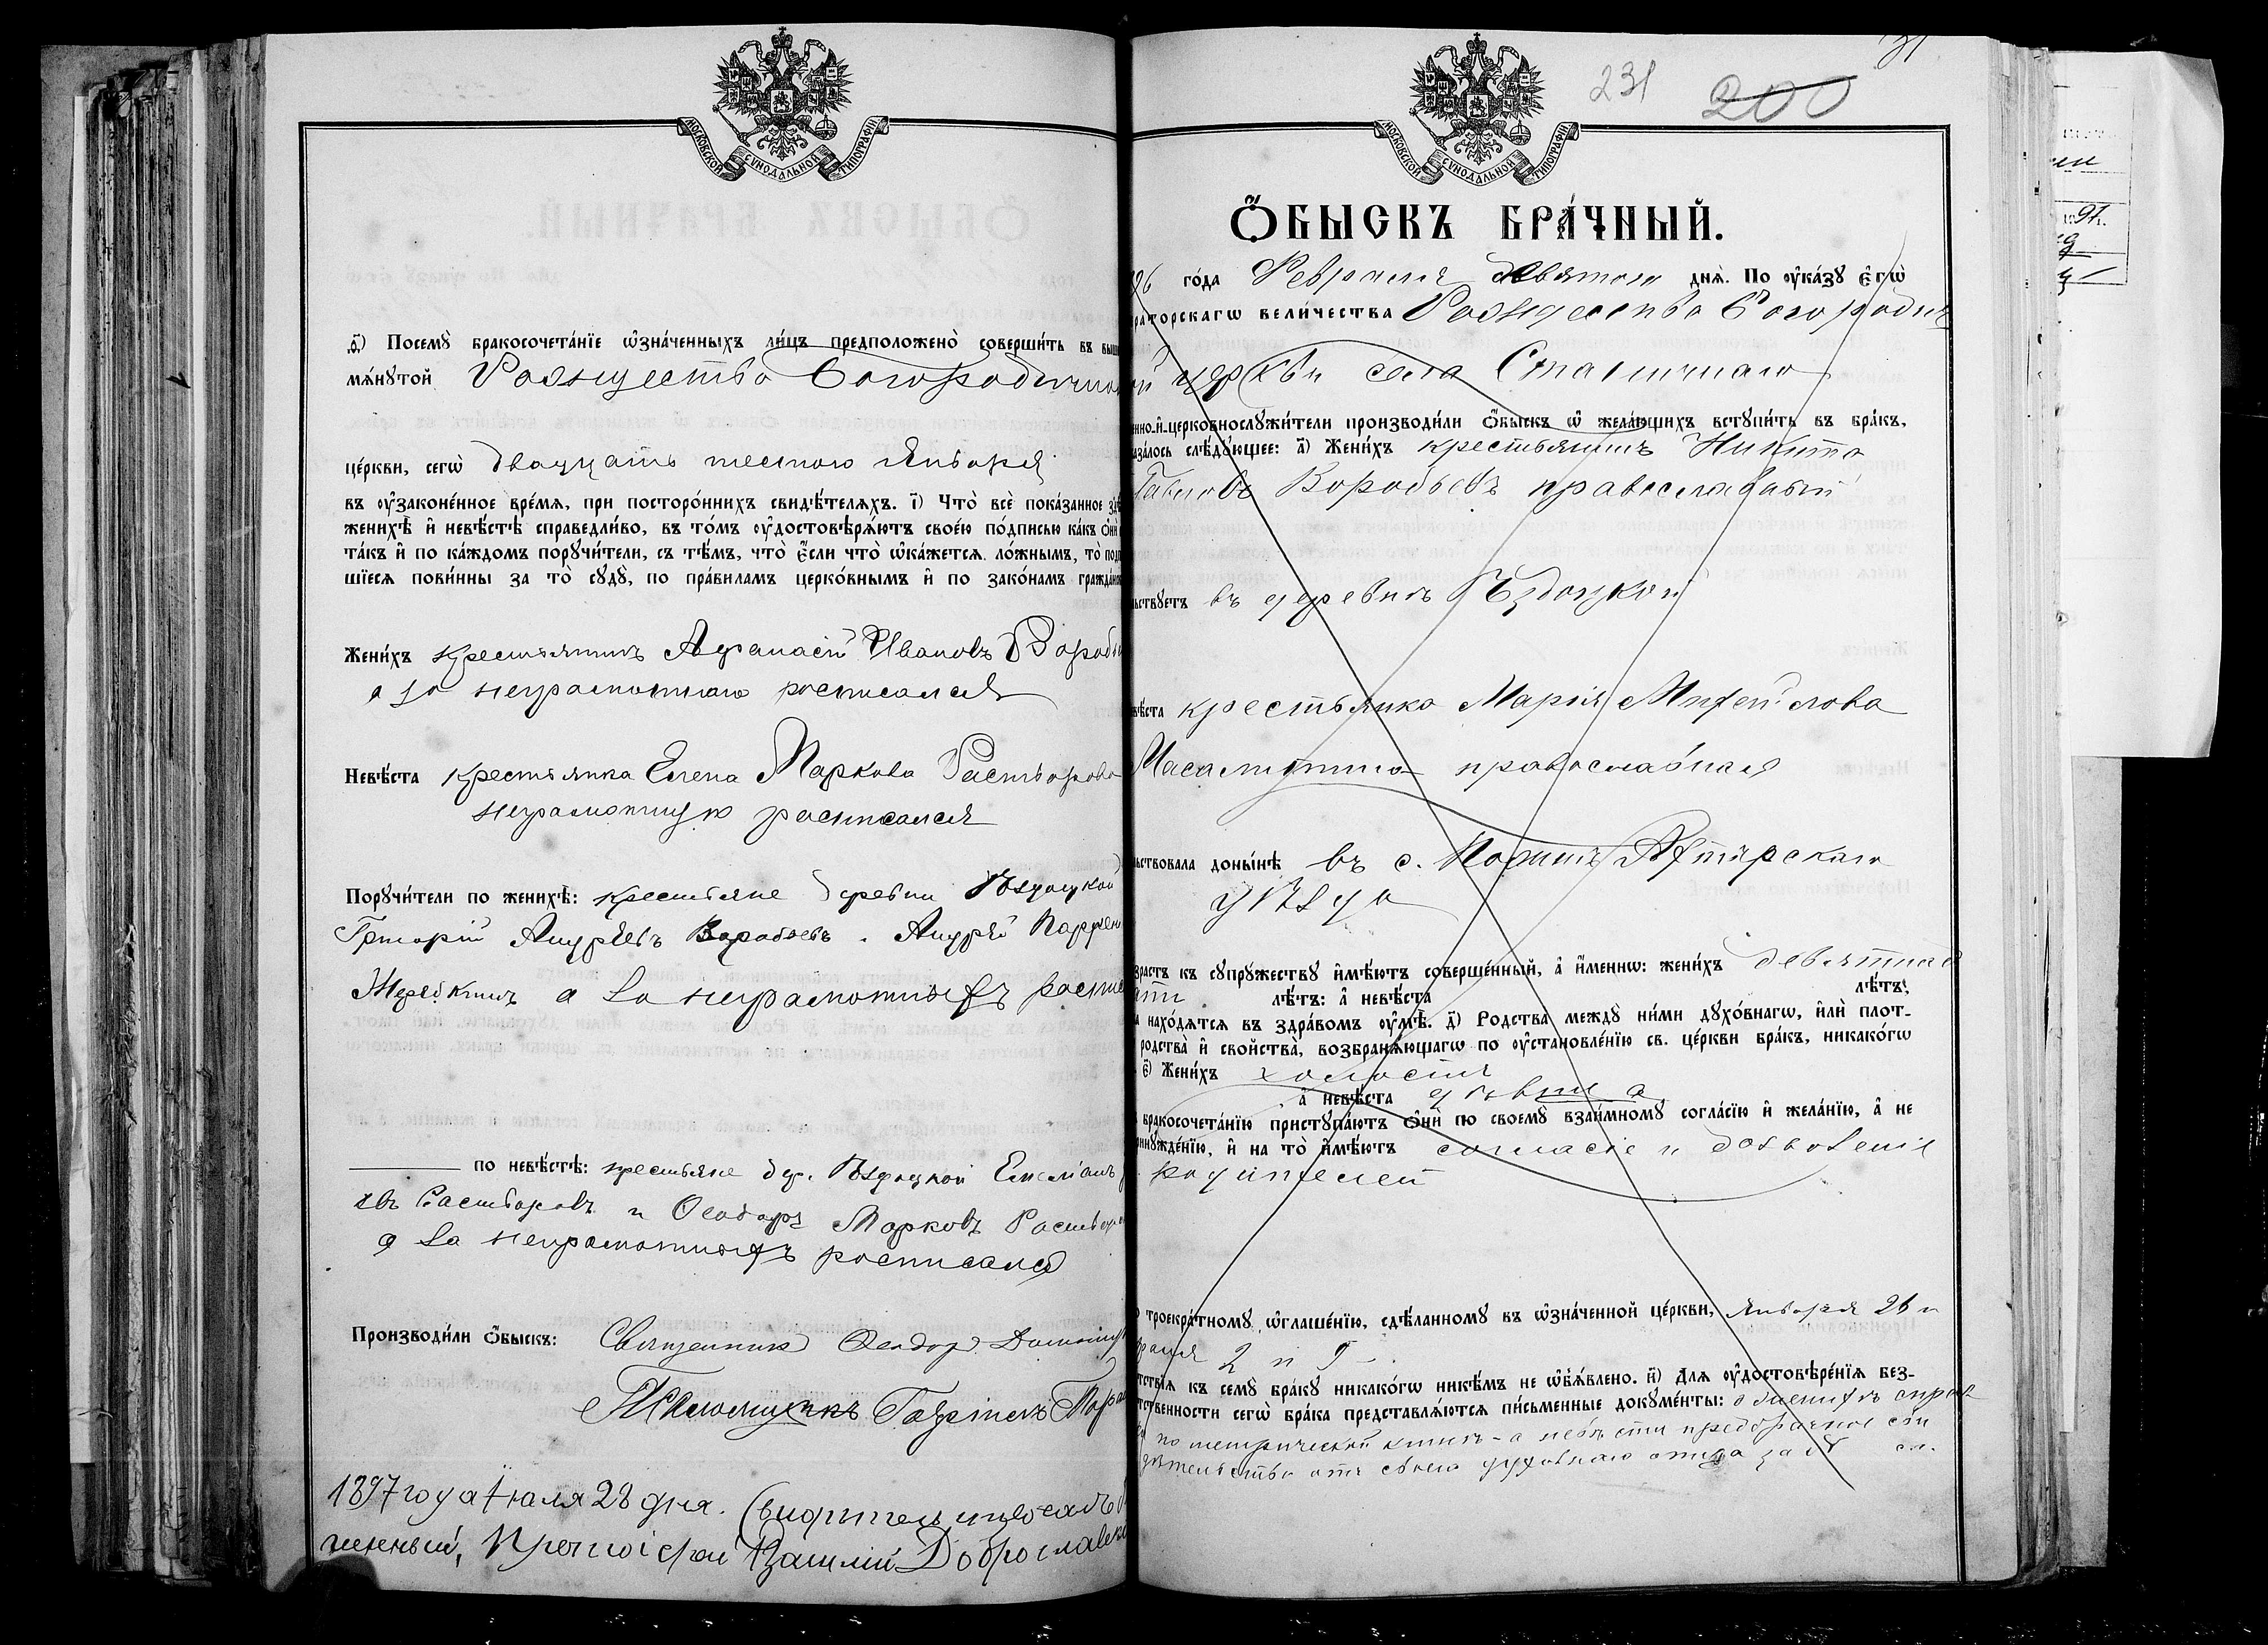 МОСКОВСКОЙ СѴНОДАЛЬНОЙ ТИПОГРАФІИ
ѳ҃) Посемꙋ̀ бракосочета́нїе ѡ҆зна́ченныхъ ли́цъ предположено̀ соверши́ть въ выше
мѧ́нꙋтой Рождество Богородичной
це́ркви, сегѡ̀ двадцать шестого Января
въ ᲂу҆зако́ненное вре́мѧ, при посторо́ннихъ свидѣ́телѧхъ. і҃) Что̀ всѐ пока́занное здѣ
женихѣ̀ и҆ невѣ́стѣ справедли́во, въ то́мъ ᲂу҆достовѣрѧ́ютъ свое́ю по́дписью ка́къ ѻ҆нѝ
та́къ и҆ по ка́ждомъ порꙋчи́тели, съ тѣ́мъ, что̀ є҆́сли что̀ ѡ҆ка́жетсѧ ло́жнымъ, то̀ подп
шїесѧ пови́нны за то̀ сꙋдꙋ̀, по пра́виламъ церко́внымъ и҆ по зако́намъ гражда́нск
Жени́хъ крестьянинъ Афанасій Ивановъ Вороб
а за неграмотнаго росписался
Невѣ́ста крестьянка Елена Маркова Растворова
неграмотную росписался
Порꙋчи́тели по женихѣ̀: крестьяне деревни
Григорій Андреевъ Воробьевъ. Андрей Парфен
а за неграмотныхъ роспи
по невѣ́стѣ: крестьяне дер.
Растворовъ и Ѳеодоръ Марковъ Раство
а за неграмотныхъ росписался
Производи́ли ѻ҆́быскъ: Священникъ Ѳеодоръ
Псаломщикъ Гавріилъ
1897 года Іюля 28 дня. Свидѣтельствовалъ
Протоіерей Василій Доброславск
231 200
31
МОСКОВСКОЙ СѴНОДАЛЬНОЙ ТИПОГРАФІИ
Ѻ҆́БЫСКЪ БРА́ЧНЫЙ.
96 го́да Февраля девятого днѧ̀. По ᲂу҆ка́зꙋ є҆гѡ̀
раторскагѡ вели́чества Рождество Богородич
ой церкви села Станичнаго
нно-и҆-церковнослꙋжи́тели производи́ли ѻ҆́быскъ ѡ҆ жела́ющихъ встꙋпи́ть въ бра́къ,
аза́лось слѣ́дꙋющее: а҃) Жени́хъ крестьянинъ Никита
Павловъ Воробьевъ православный
льствꙋетъ въ деревнѣ
вѣ́ста крестьянка Марія Михайлова
православная
льствовала доны́нѣ въ с. Ахтырскаго
уѣзда
зрастъ къ сꙋпрꙋжествꙋ и҆мѣ́ютъ соверше́нный, а҆ и҆́меннѡ: жени́хъ девятнад
ати лѣ́тъ: а҆ невѣ́ста лѣ́тъ,
а нахо́дѧтсѧ въ здра́вомъ ᲂу҆мѣ̀. д҃) Родства междꙋ ни́ми дꙋхо́внагѡ, и҆лѝ плот-
родства̀ и҆ свойства̀, возбранѧ́ющагѡ по ᲂу҆становле́нїю св. це́ркви бра́къ, никако́гѡ
є҃) Жени́хъ холостъ
а҆ невѣ́ста дѣвица
бракосочета́нїю пристꙋпа́ютъ ѻ҆нѝ по своемꙋ̀ взаи́мномꙋ согла́сїю и҆ жела́нїю, а҆ не
нꙋжде́нїю, и҆ на то̀ и҆мѣ́ютъ согласіе и дозволеніе
родителей
троекра́тномꙋ ѡ҆глаше́нїю, сдѣ́ланномꙋ въ ѡ҆зна́ченной це́ркви, Января 26 и
раля 2 и 9
тствїѧ къ семꙋ̀ бра́кꙋ никако́гѡ никѣ́мъ не ѡ҆б̾ѧ́влено. и҃) Длѧ ᲂу҆достовѣре́нїѧ без-
тственности сегѡ̀ бра́ка представлѧ́ютсѧ пи́сьменные докꙋме́нты: о женихѣ справ
по метрической книгѣ - а невѣсты предбрачное сви
дѣтельство отъ своего духовнаго отца за №